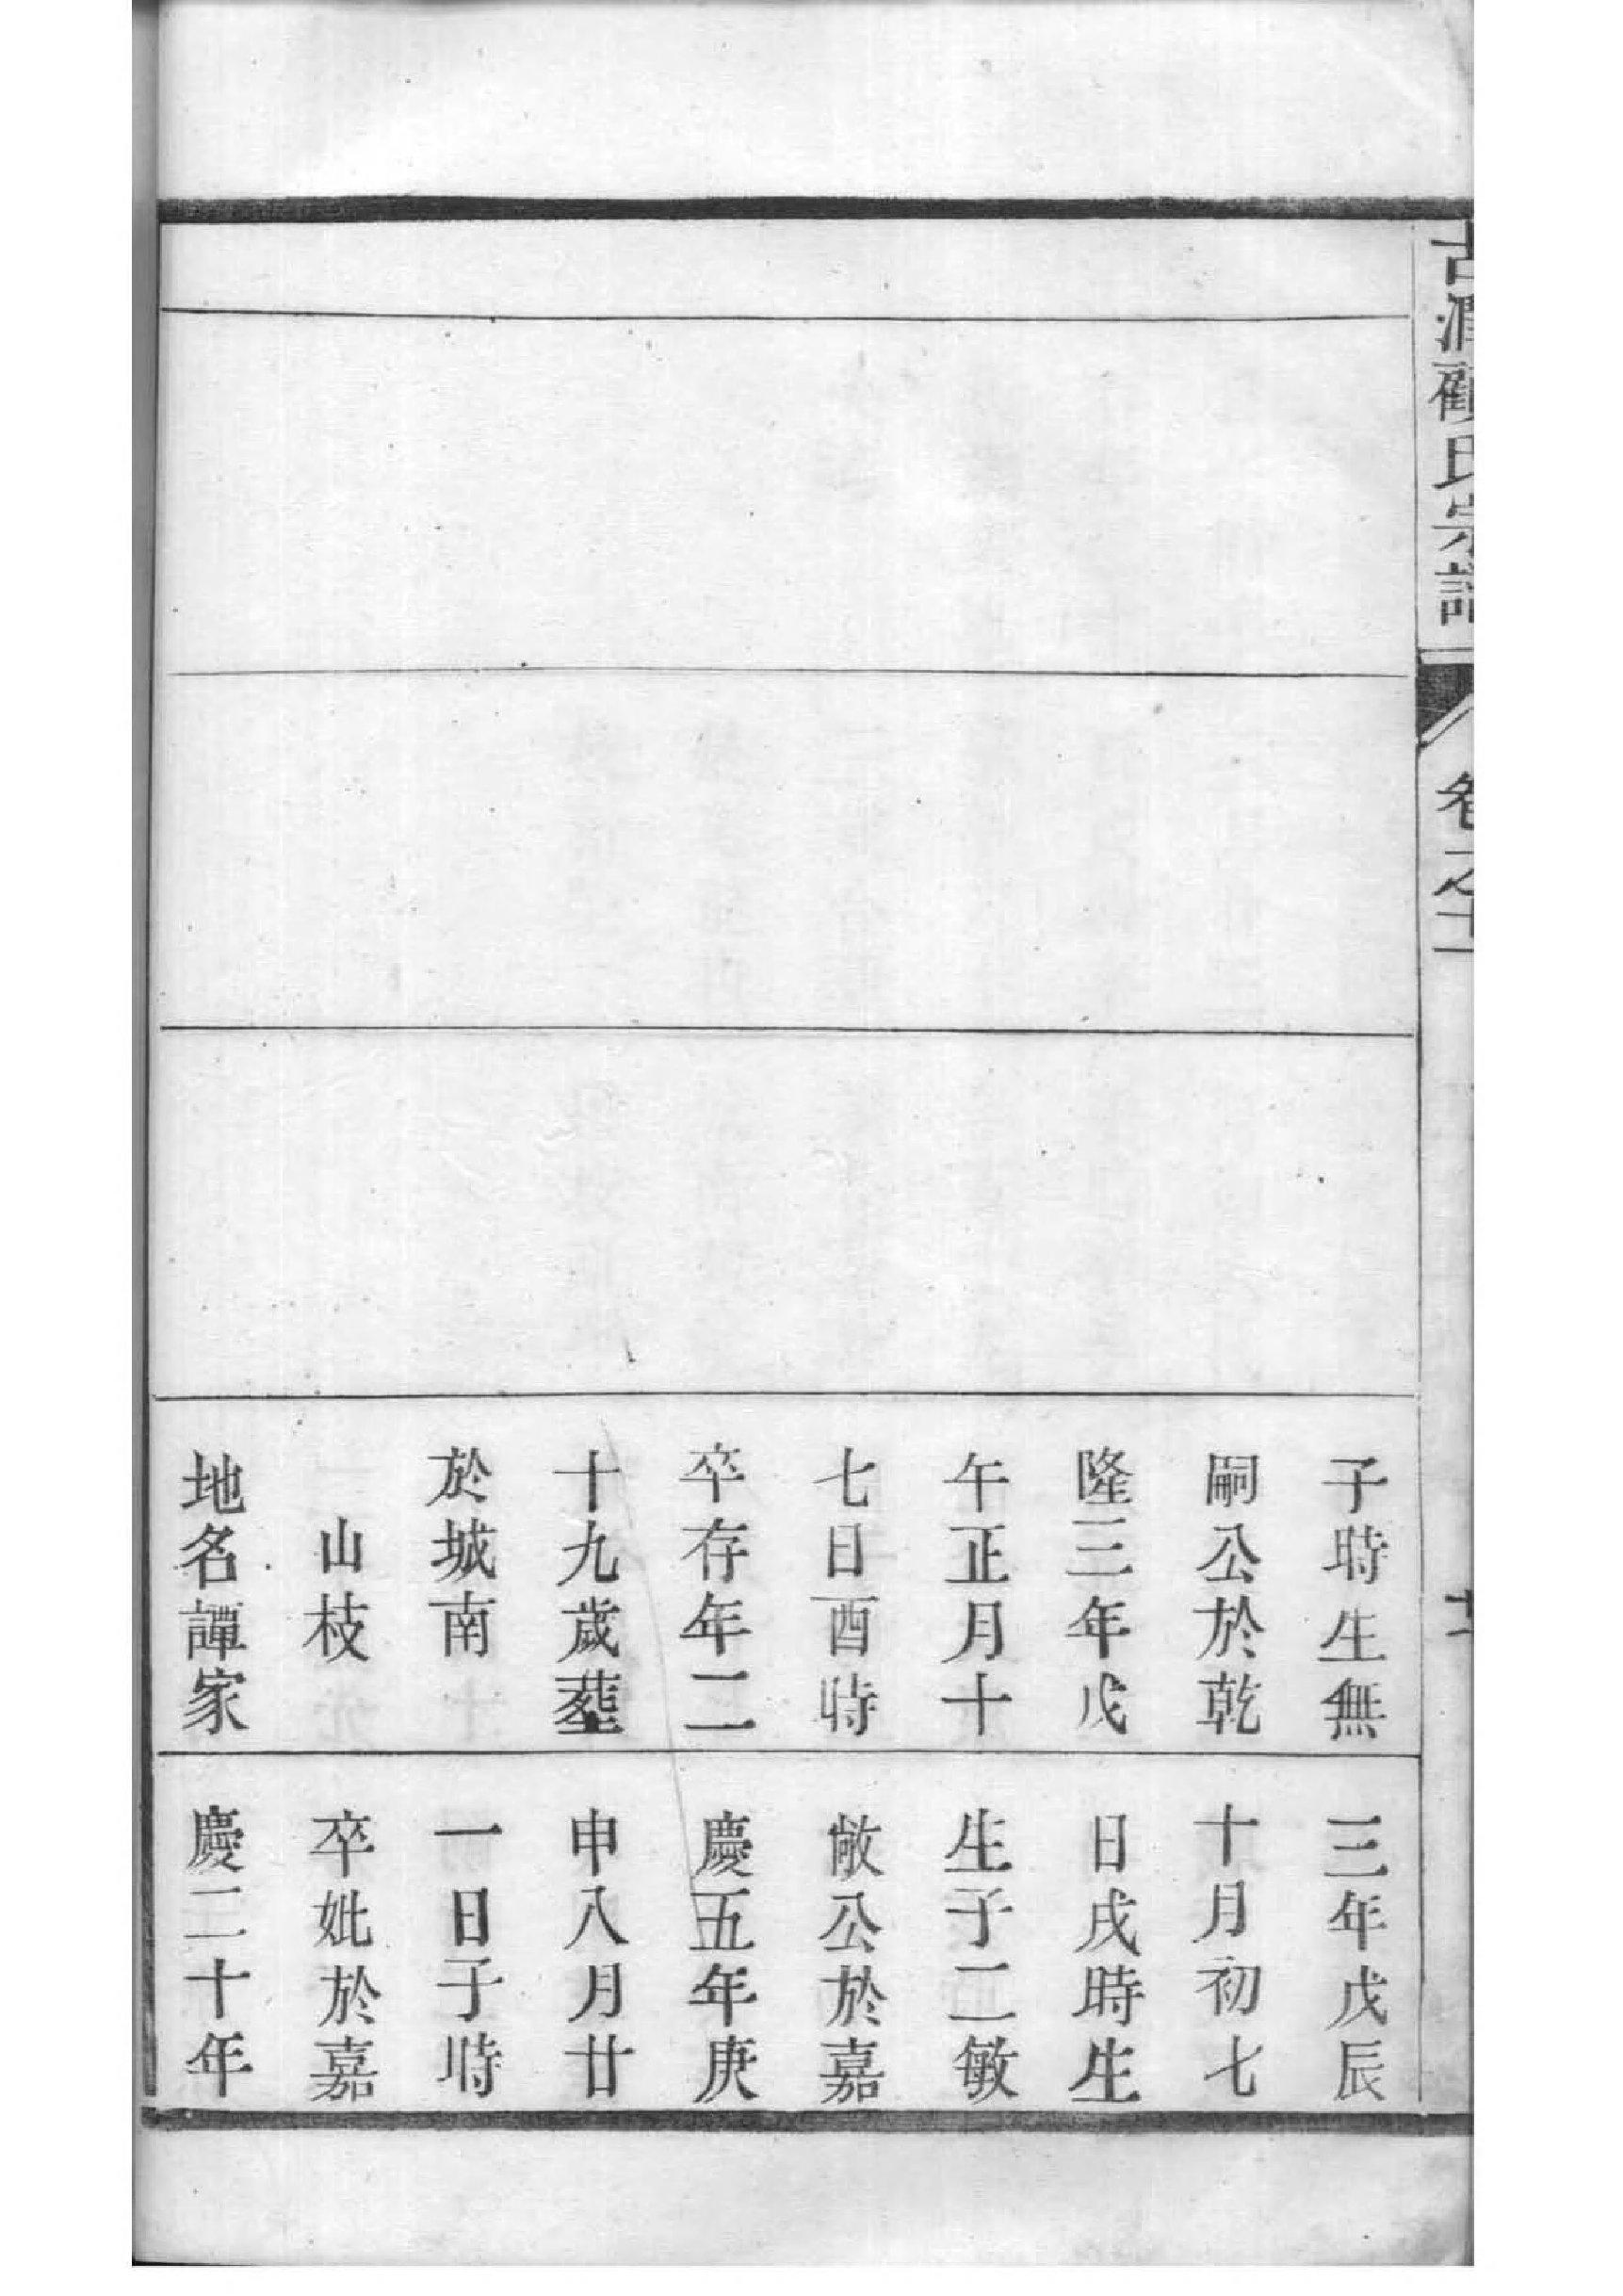 古潤顧氏宗譜
卷之十一
子時生無
嗣公於乾
隆三年戊
午正月十
七日酉時
卒存年二
十九歲塟
於城南
山枝
地名譚家
三年戊辰
十月初七
日戌時生
生子二敏
敞公於嘉
慶五年庚
申八月廿
一日子時
卒妣於嘉
慶二十年